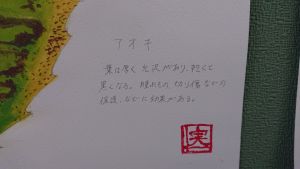 アオキ
葉は厚く光沢があり、乾くと
黒くなる。腫れもの、切り傷などの
保護、などに効果がある。